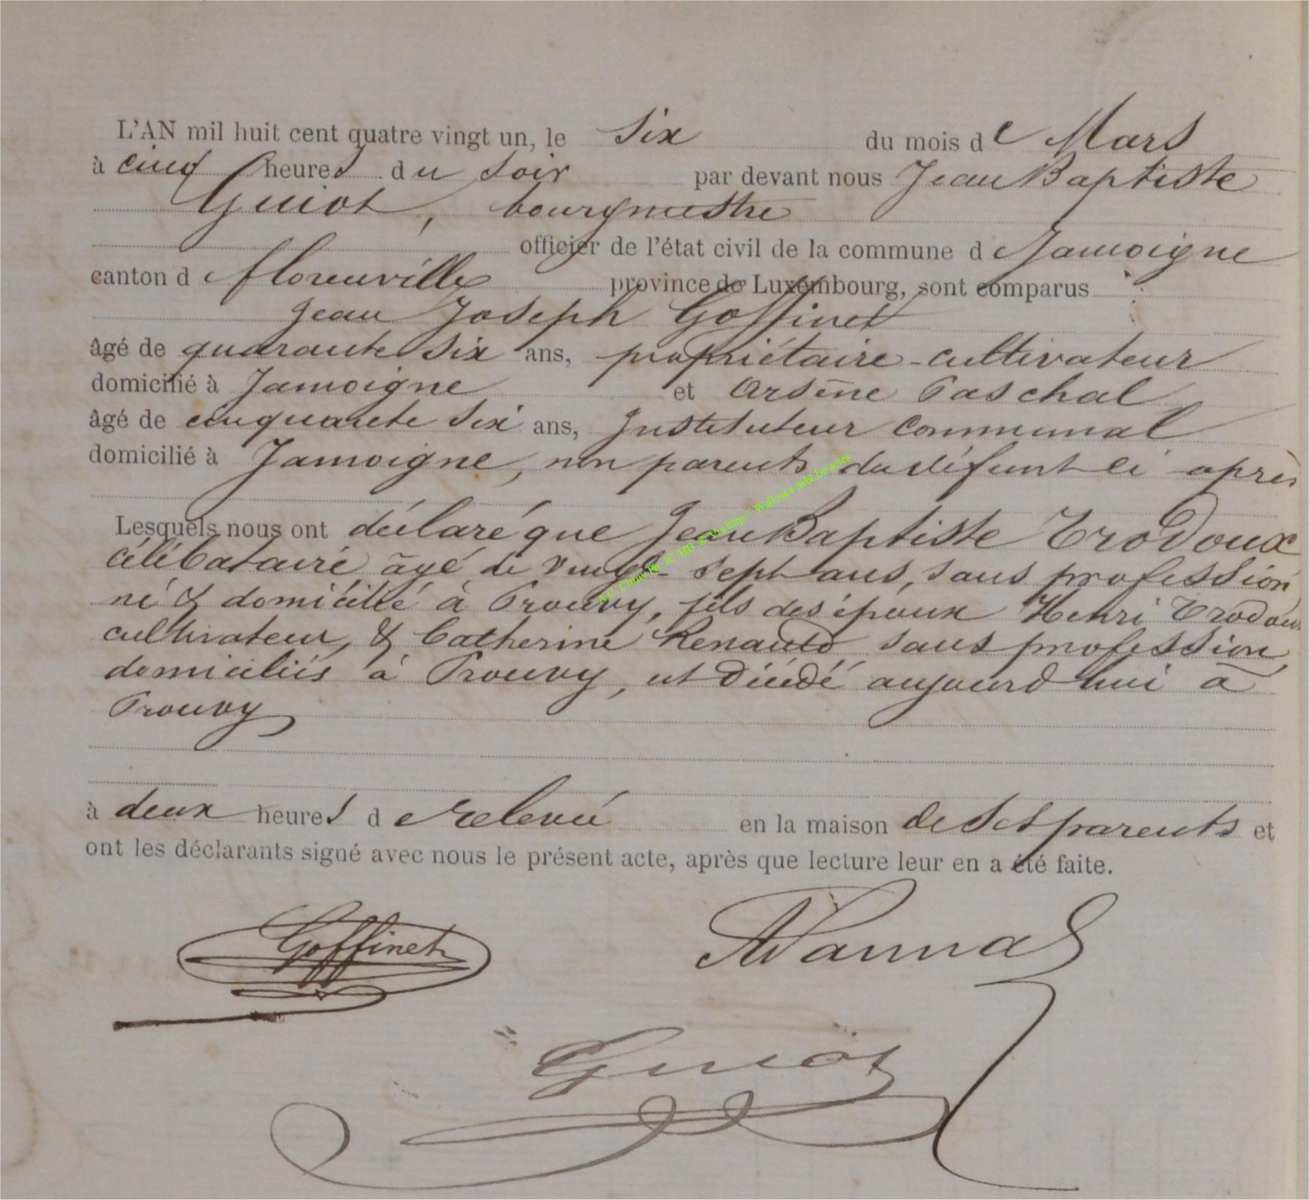 L'AN mil huit cent quatre vingt un, le Six du mois de Mars
à cinq heures du Soir par devant nous Jean Baptiste
Guiot, bourgmestre
officier de l'état civil de la commune de Jamoigne
canton de Florenville province de Luxembourg, sont comparus
Jean Joseph Goffinet
âgé de quarante Six ans, propriétaire-cultivateur
domicilié à Jamoigne et Arsène Paschal
âgé de cinquante Six ans, Instituteur Communal
domicilié à Jamoigne, non parents du défunt ci après
Lesquels nous ont déclaré que Jean Baptiste Trodoux
célibataire âgé de vingt-sept ans, sans profession
né & domicilié à Prouvy, fils des époux Henri Trodoux
cultivateur, & Catherine Renauld sans profession,
domiciliés à Prouvy, est décédé aujourd'hui à
Prouvy
à deux heures de relevée en la maison de Ses parents et
ont les déclarants signé avec nous le présent acte, après que lecture leur en a été faite.
Goffinet
Guiot